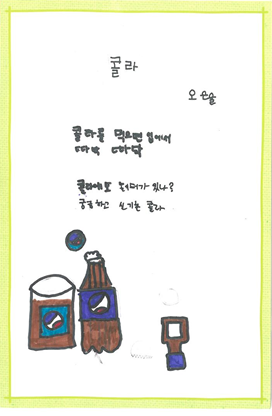 콜라
오은솔
콜라를 먹으면 입에서
따닥 따닥
콜라에도 농마가 있나?
궁금하고 신기한 콜라